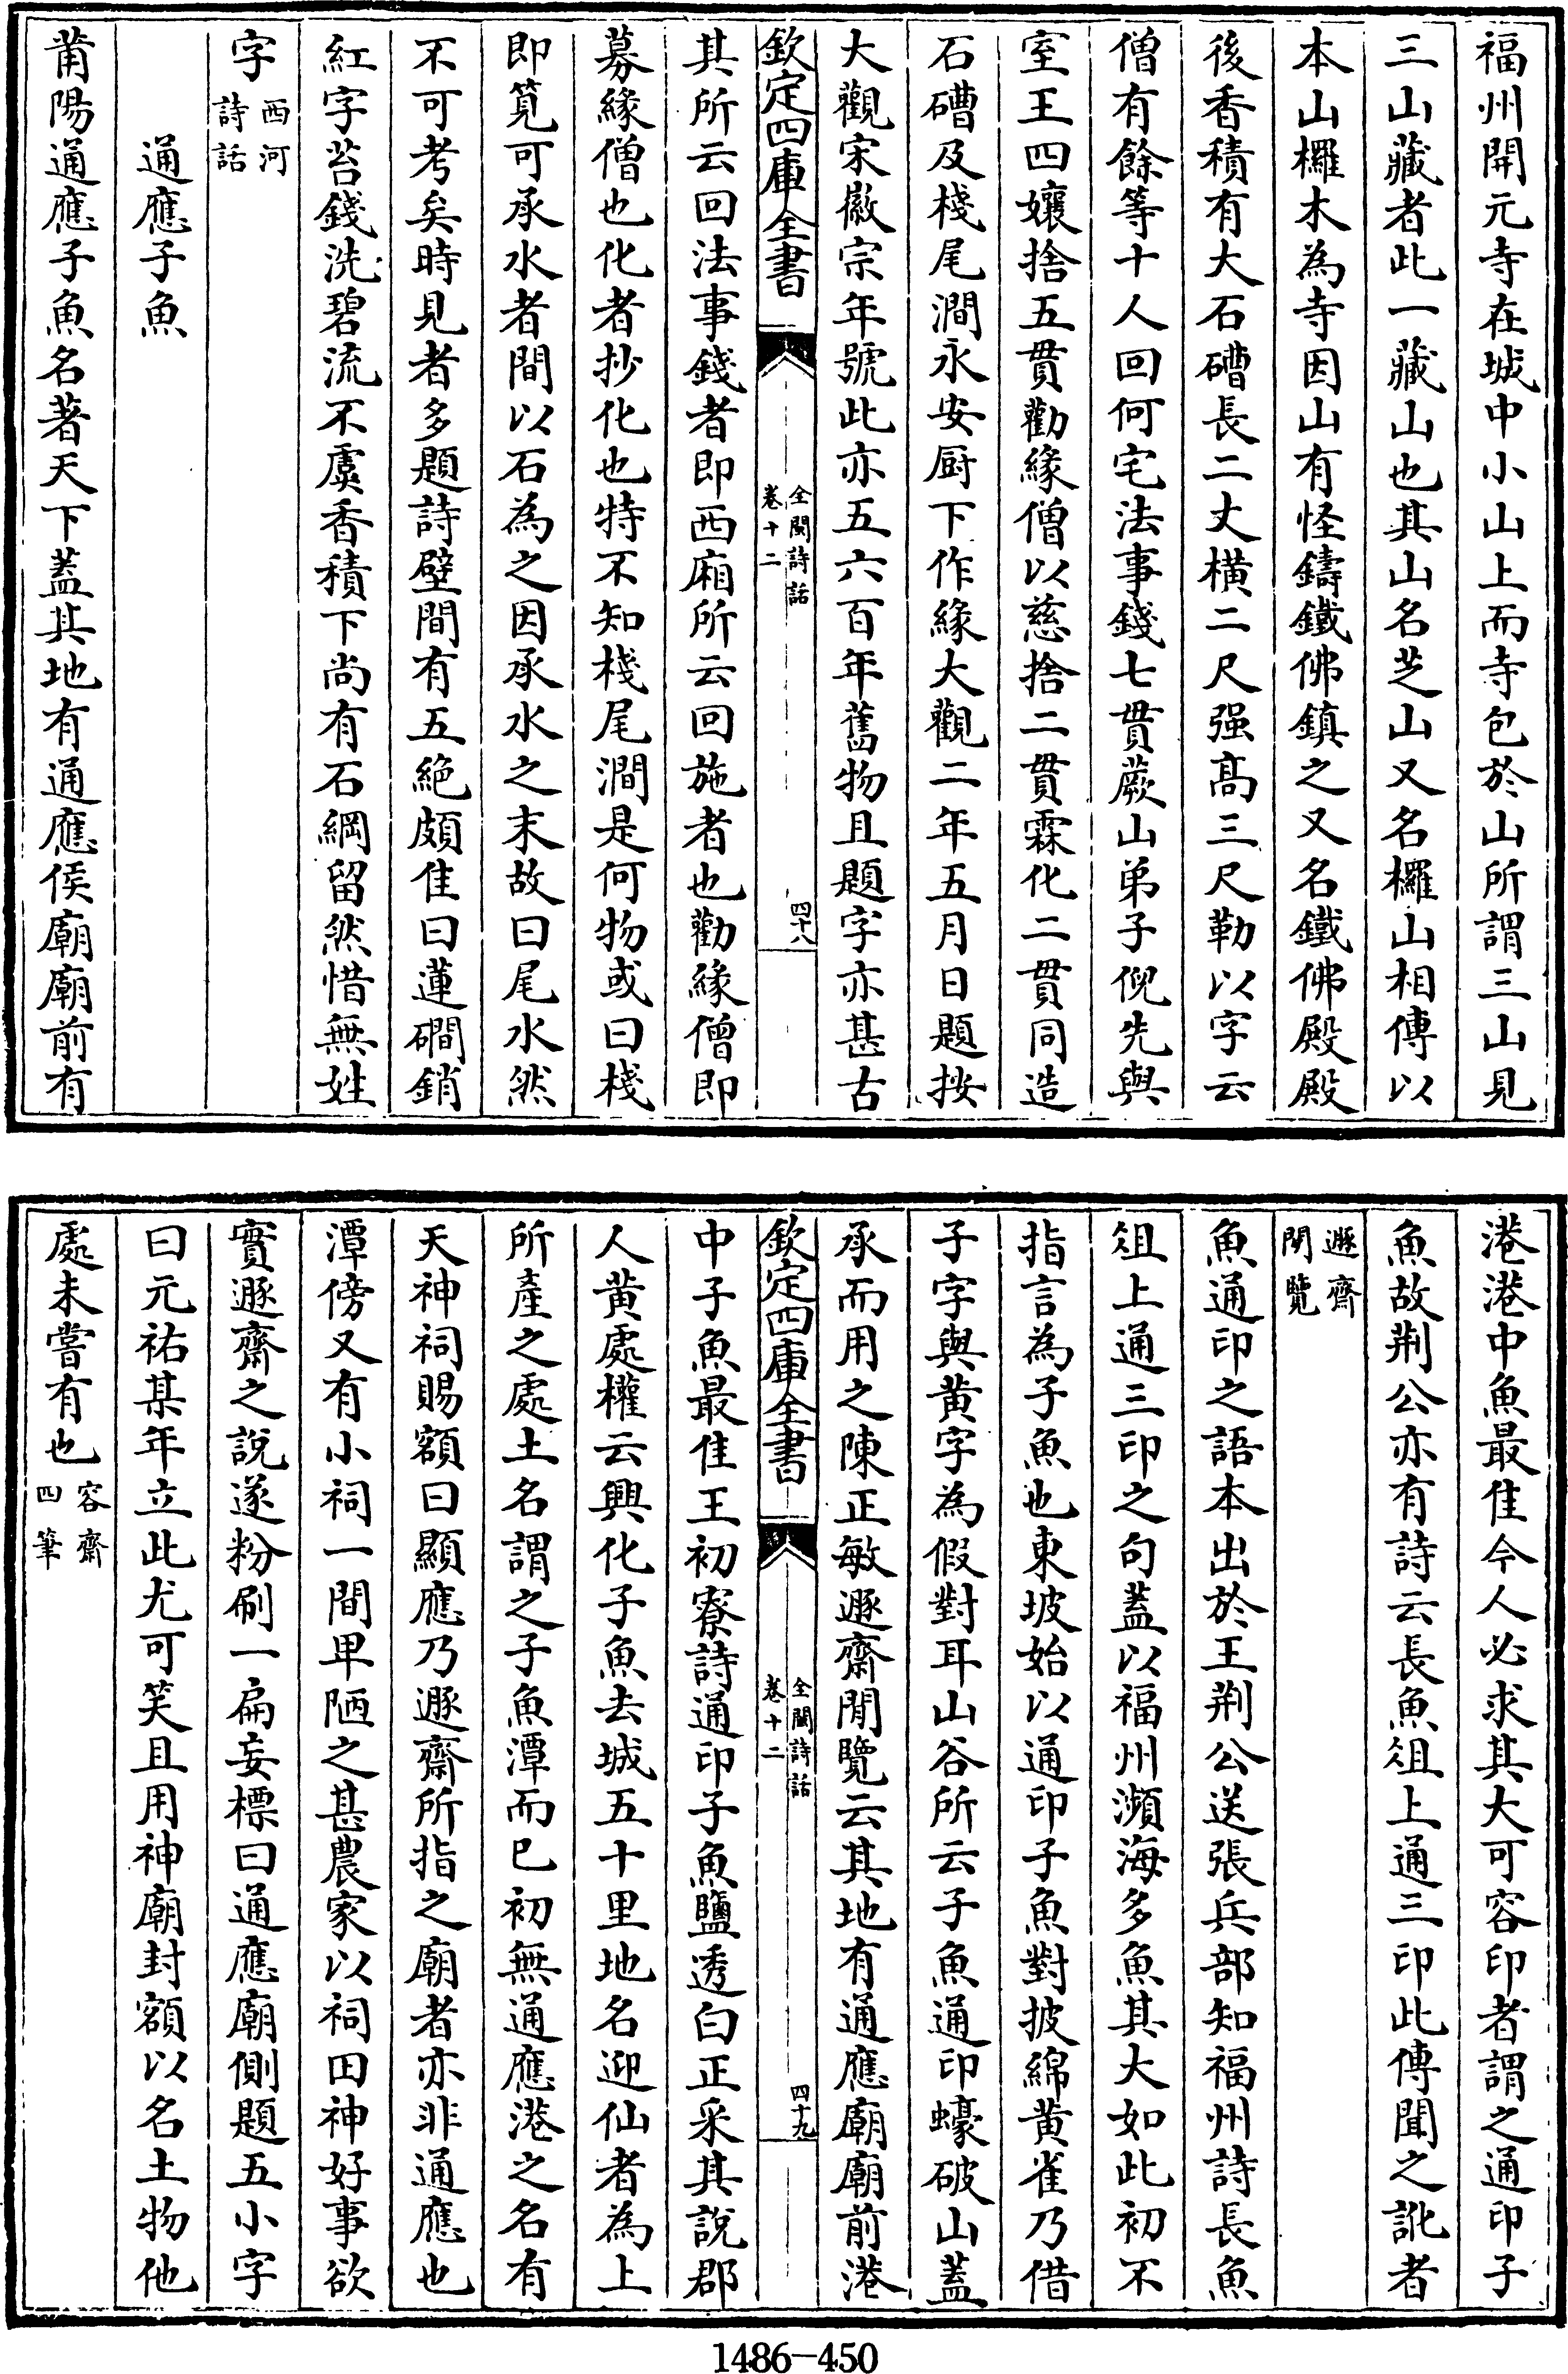 福州開元寺在城中小山上而寺包於山所謂三山見
三山藏者此一藏山也其山名芝山又名欏山相傳以
本山欏木為寺因山有怪鑄鐵佛鎮之又名鐵佛殿殿
後香積有大石磧長二丈橫二尺强髙三尺勒以字云
僧有餘等十人回何宅法事錢七貫蕨山弟子倪先與
室王四孃捨五貫勸緣僧以慈捨二貫霖化二貫同造
石磧及棧尾澗永安厨下作緣大觀二年五月日題按
大觀宋徽宗年號此亦五六百年舊物且題字亦甚古
欽定四庫全書
全閩詩話
卷十二
四十八
其所云回法事錢者即西廂所云回施者也勸緣僧即
募緣僧也化者抄化也特不知棧尾澗是何物或曰棧
即筧可承水者間以石為之因承水之末故曰尾水然
不可考矣時見者多題詩壁間有五絕頗佳曰蓮磵銷
紅字苔錢洗碧流不虞香積下尚有石綱留然惜無姓
字西河詩話
通應子魚
莆陽通應子魚名著天下蓋其地有通應侯廟廟前有
港港中魚最佳今人必求其大可容印者謂之通印子
魚故荆公亦有詩云長魚俎上通三印此傳聞之訛者
遯齋閒覽
魚通印之語本出於王荆公送張兵部知福州詩長魚
俎上通三印之句蓋以福州瀕海多魚其大如此初不
指言為子魚也東坡始以通印子魚對披綿黄雀乃借
子字與黄字為假對耳山谷所云子魚通印蠔破山蓋
承而用之陳正敏遯齋閒覽云其地有通應廟廟前港
欽定四庫全書
全閩詩話
卷十二
四十九
中子魚最佳王初寮詩通印子魚鹽透白正采其說郡
人黄處權云興化子魚去城五十里地名迎仙者為上
所產之處土名謂之子魚潭而已初無通應港之名有
天神祠賜額曰顯應乃遯齋所指之廟者亦非通應也
潭傍又有小祠一間卑陋之甚農家以祠田神好事欲
實遯齋之說遂粉刷一扁妄標曰通應廟側題五小字
曰元祐某年立此尤可笑且用神廟封額以名土物他
處未嘗有也容齋四筆
1486-450